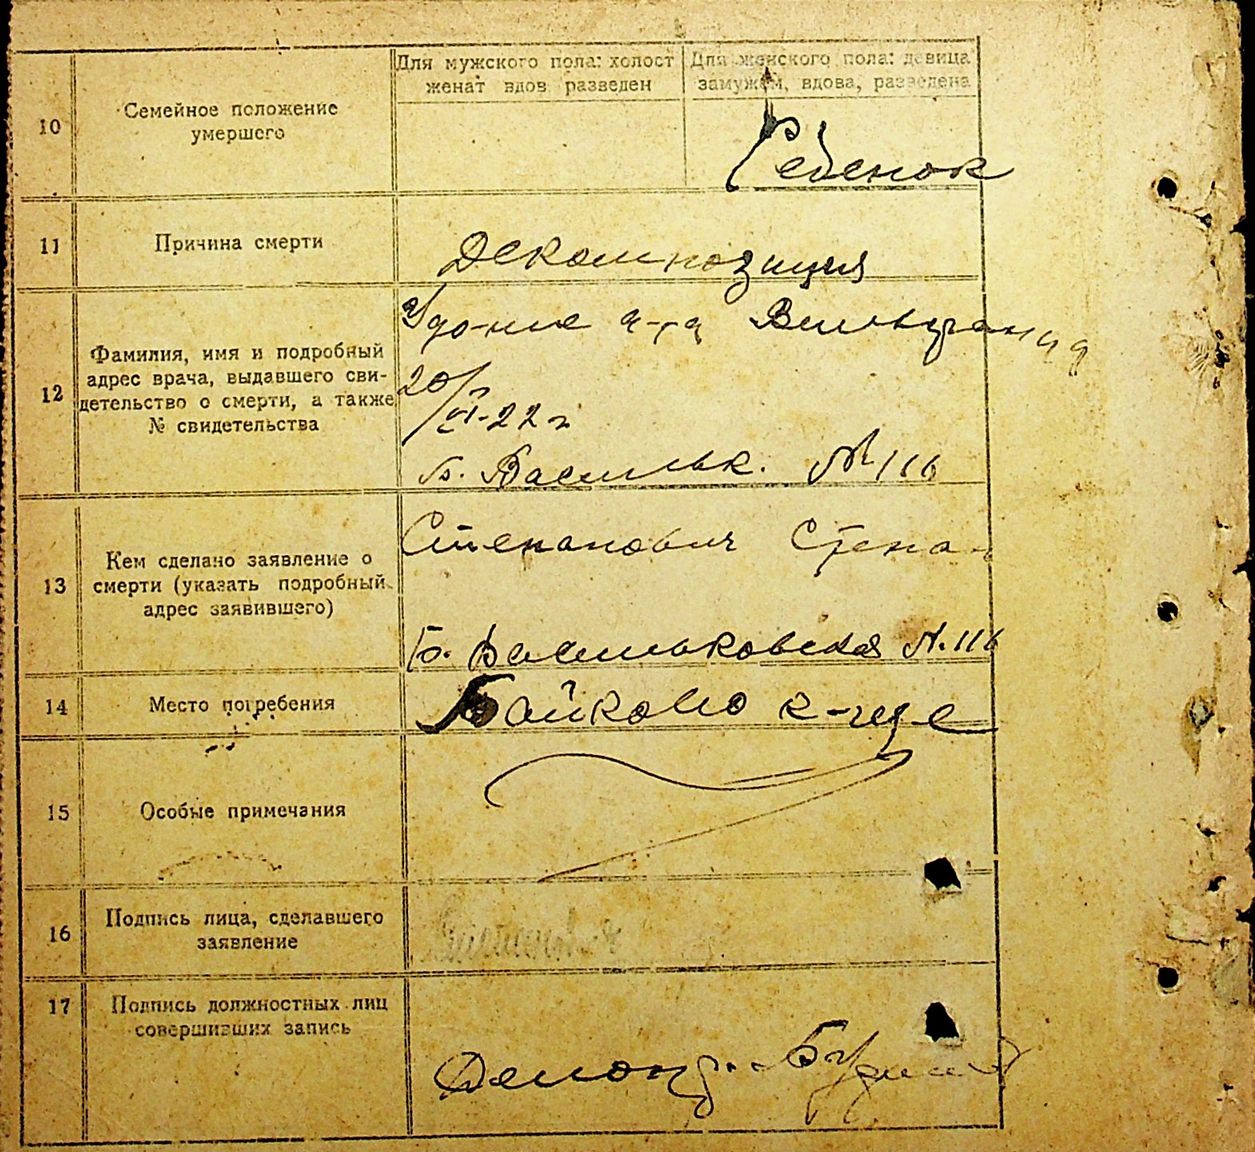 Для мужского пола: холост
женат вдов разведен
Для женского пола: девица
замужем, вдова, разведена
10
Семейное положение
умершего
Ребенок
11
Причина смерти
Декомпозиция
12
Фамилия, имя и подробный
адрес врача, выдавшего сви-
детельство о смерти, а также
№ свидетельства
Удо-ние
20/VI-22 г
Б. Васильк. № 116
13
Кем сделано заявление о
смерти (указать подробный
адрес заявившего)
Степанович Степан
Б. Васильковская № 116
14
Место погребения
Байково к-ще
15
Особые примечания
16
Подпись лица, сделавшего
заявление
17
Подпись должностных лиц
совершивших запись